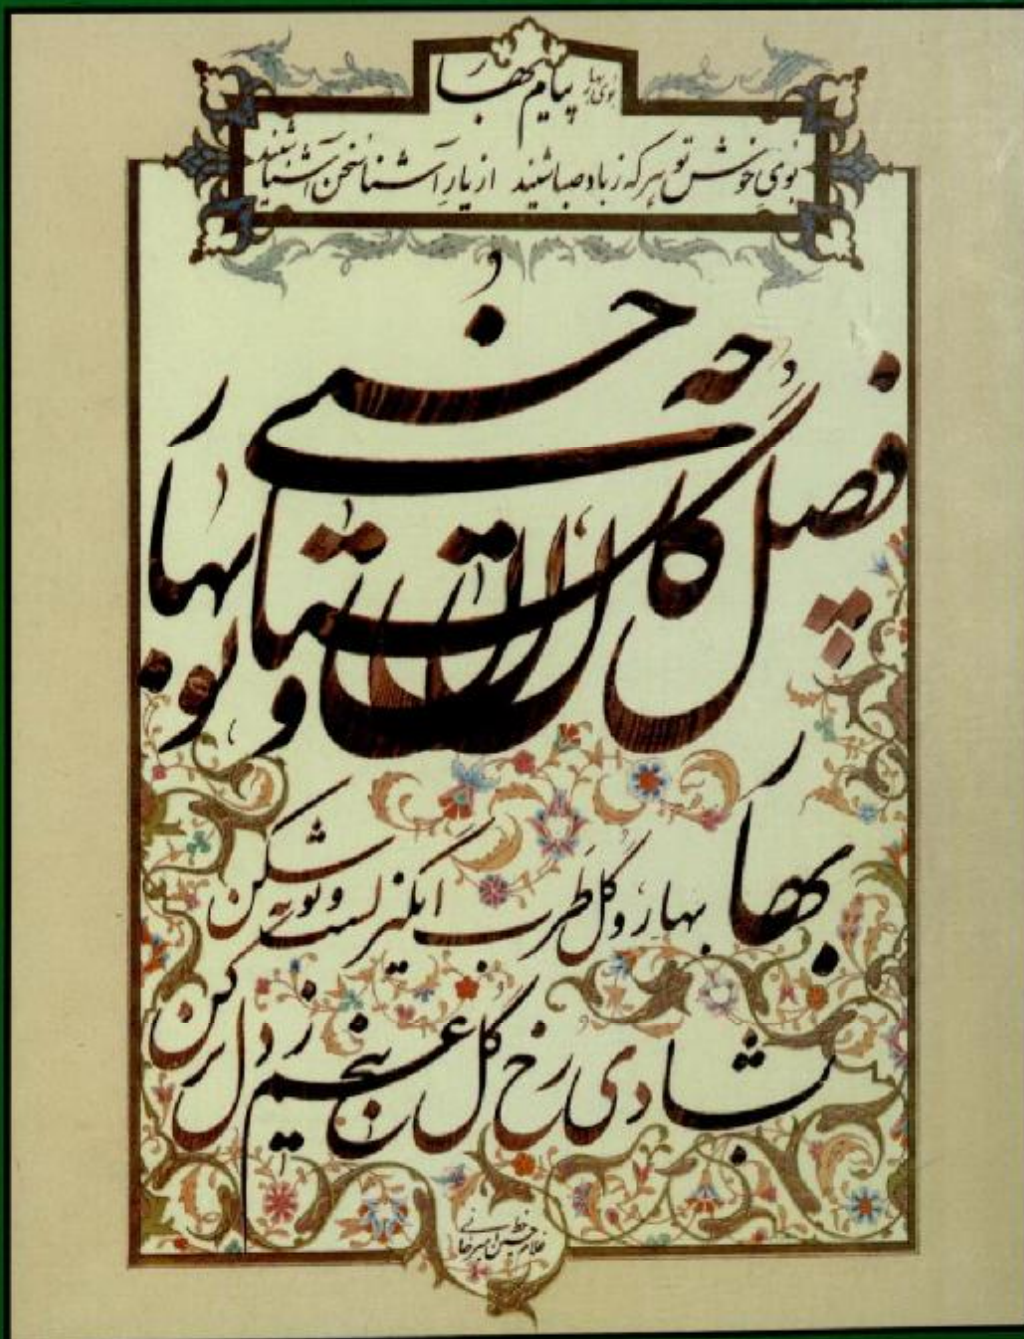 پیام بهار
بوی خوش تو هر که ز باد صبا شنید از یار آشنا سخن آشنا شنید
فصل گل
و نوبهار
بهار
بهار و گل طرب انگیز گشت و توبه شکن
بشادی رخ گل بیخ غم ز دل برکن
خط غلامحسین امیرخانی